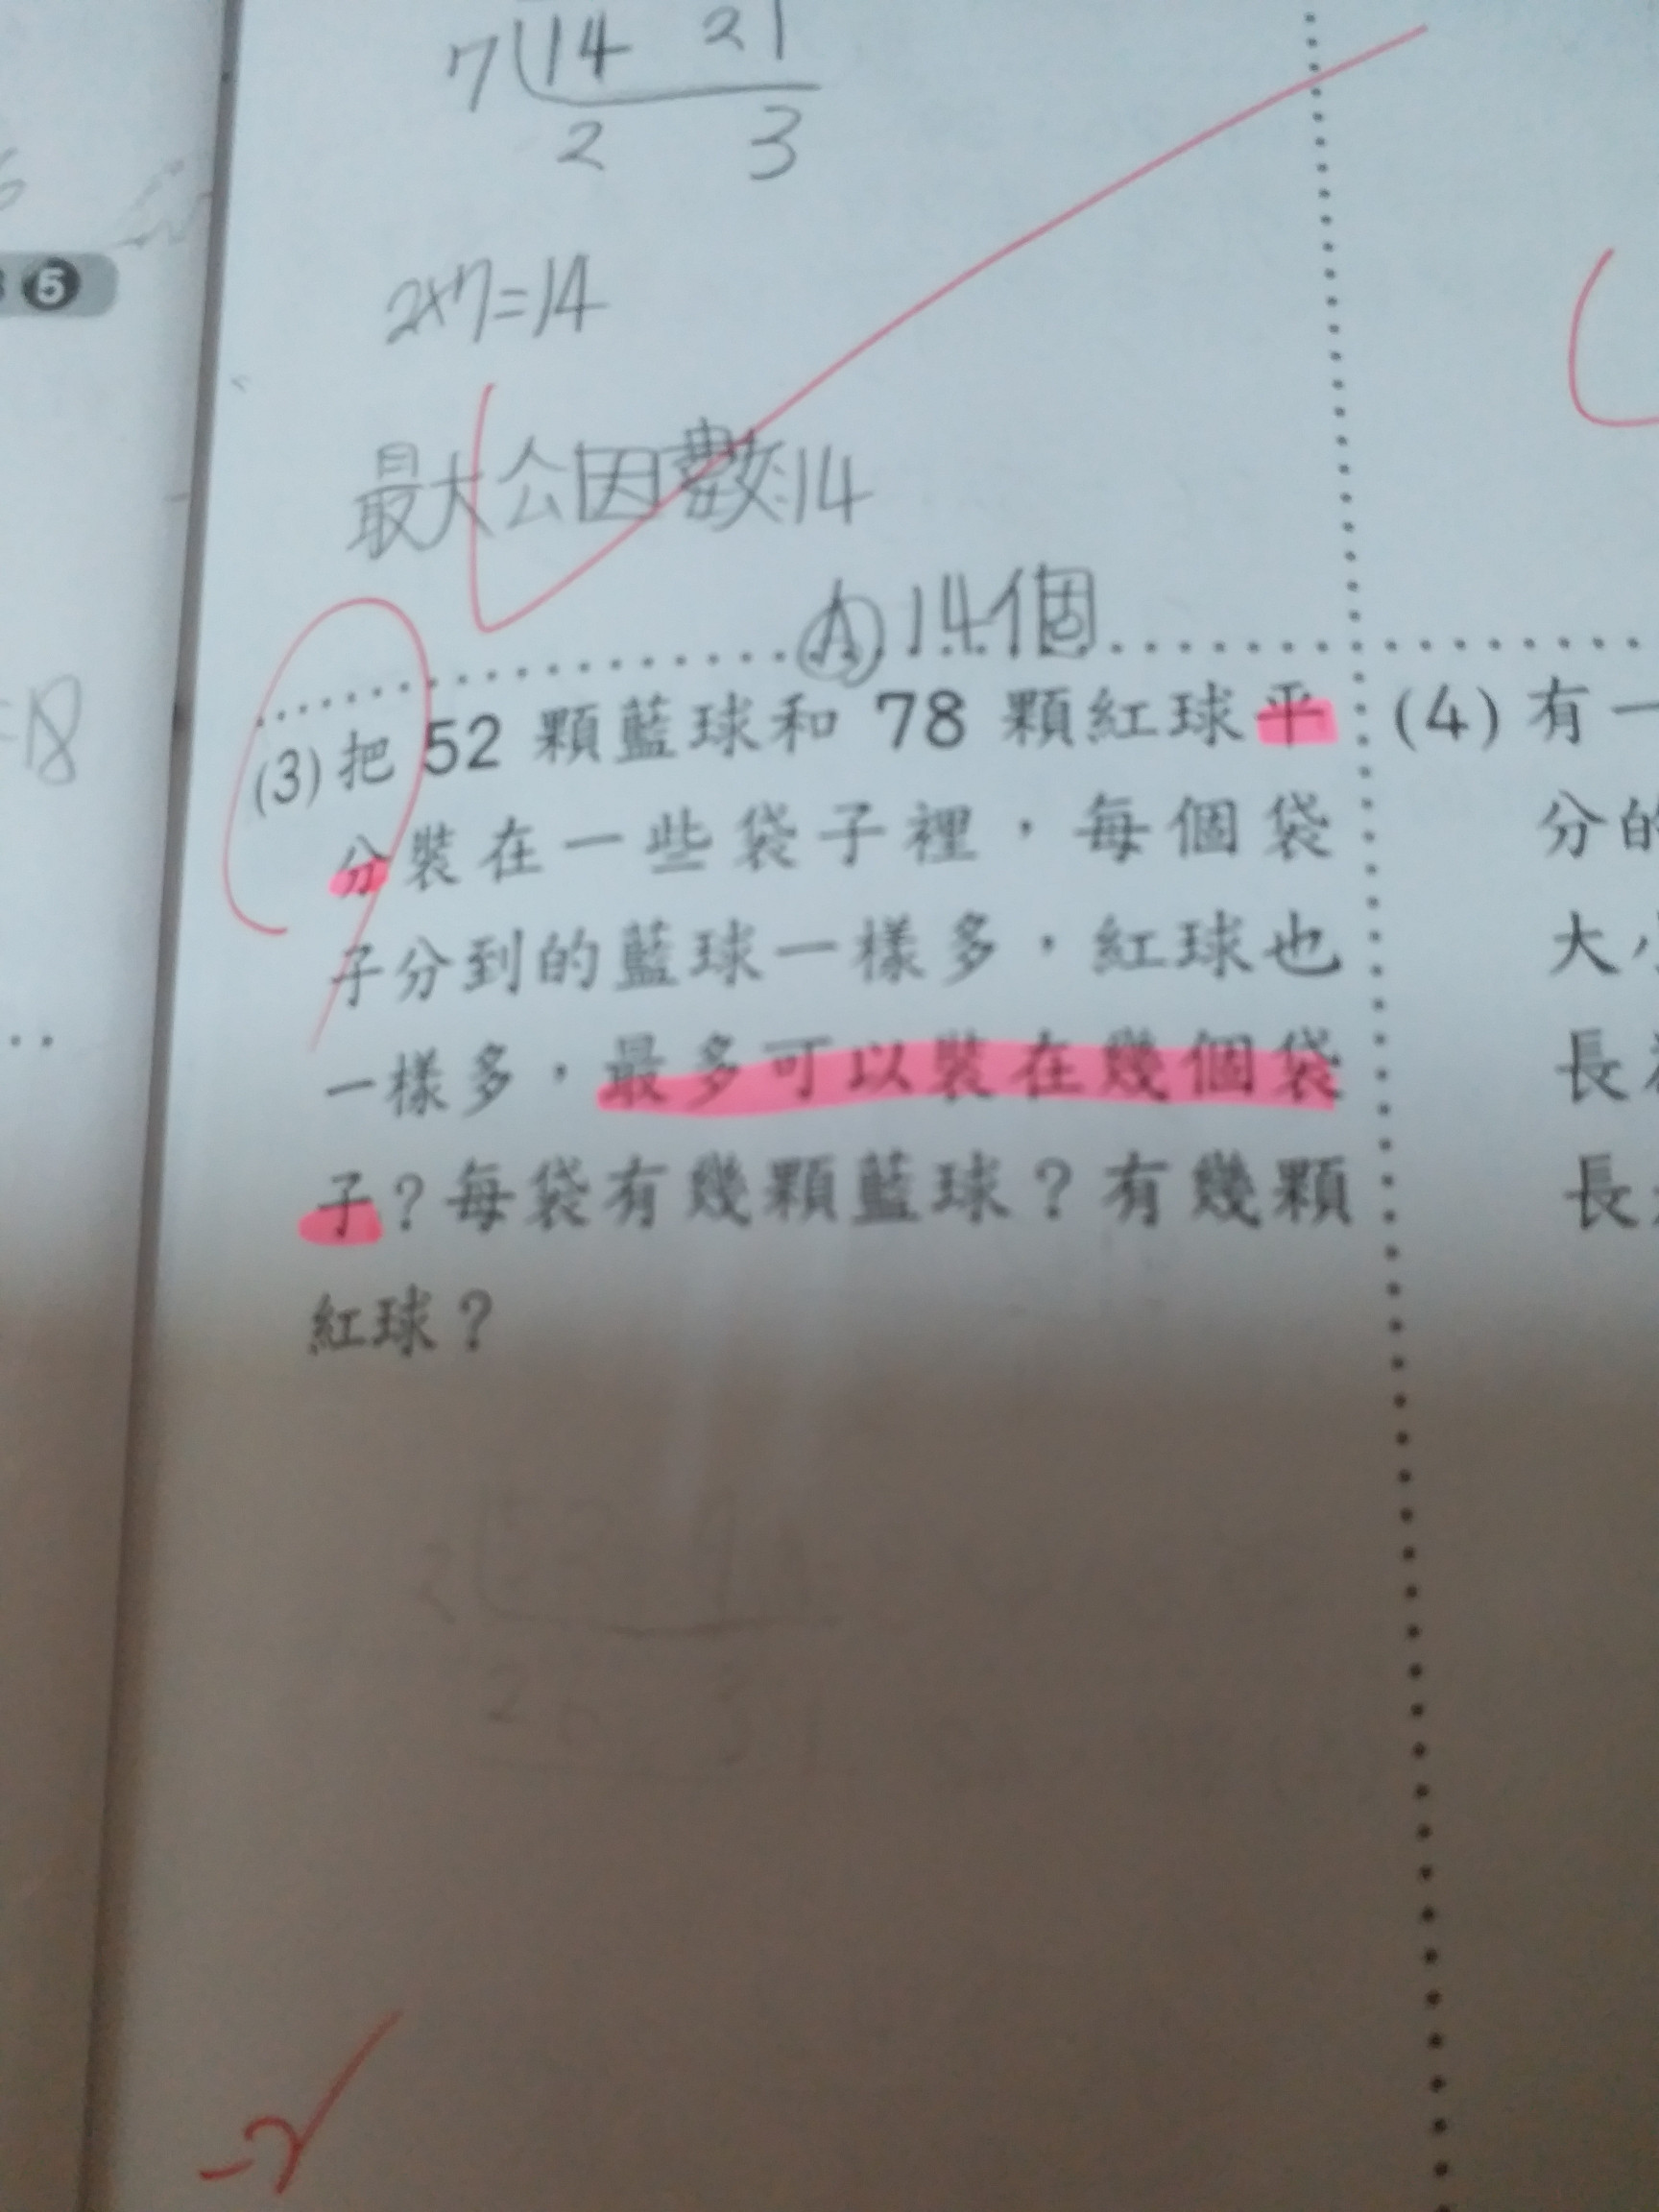 7 14 21
2 3
2×7=14
最大公因數:14
Ⓐ 14個
5
=18
(3) 把 52 顆藍球和 78 顆紅球平
分裝在一些袋子裡，每個袋
子分到的藍球一樣多，紅球也
一樣多，最多可以裝在幾個袋
子？每袋有幾顆藍球？有幾顆
紅球？
(4) 有一
分的
大小
長
長
-2